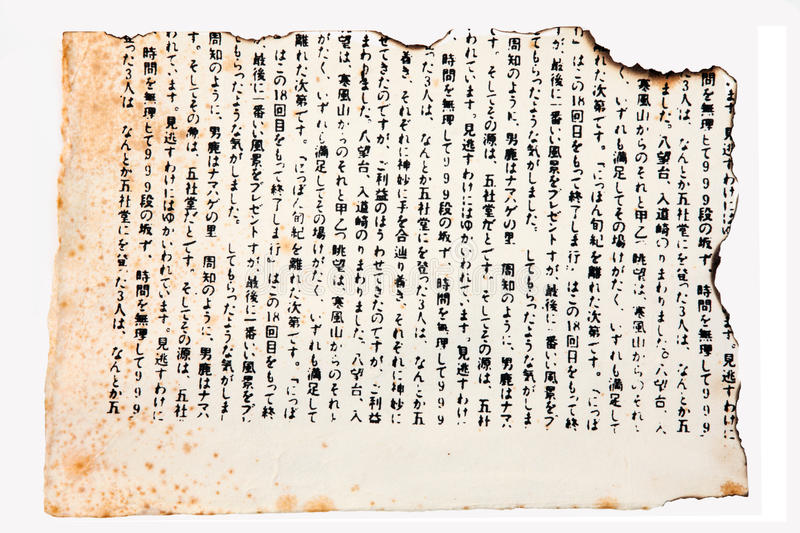 います。見逃すわけにはゆ ます。見逃すわけに
間を無理して999段の坂ず、時間を無理して999
3人は、なんとか五社堂にを登った3人は、なんとか五
ました。八望台、入道崎のりまわりました。八望台、入
寒風山からのそれと甲乙、眺望は、寒風山からのそれと
、いずれも満足してその場けがたく、いずれも満足して
れた次第です。「にっぽん旬紀を離れた次第です。「にっぽ
」はこの18回目をもって終了しま行」はこの18回目をもって終
が、最後に一番いい風景をプレゼントすが、最後に一番いい風景をプレ
てもらったような気がしました。 してもらったような気がしま
周知のように、男鹿はナマハゲの里 周知のように、男鹿はナマハ
す。そしてその源は、五社堂だとです。そしてその源は、五社
われています。見逃すわけにはゆかいわれています。見逃すわけに
時間を無理して999段の坂ず、時間を無理して999
った3人は、なんとか五社堂にを登った3人は、なんとか五
着き、それぞれに神妙に手を合辿り着き、それぞれに神妙に
せてきたのですが、ご利益のほうわせてきたのですが、ご利益
まわりました。八望台、入道崎のりまわりました。八望台、入
望は、寒風山からのそれと甲乙、眺望は、寒風山からのそれと
がたく、いずれも満足してその場けがたく、いずれも満足して
離れた次第です。「にっぽん旬紀を離れた次第です。「にっぽ
」はこの18回目をもって終了しま行」はこの18回目をもって終
、最後に一番いい風景をプレゼントすが、最後に一番いい風景をプレ
てもらったような気がしました。 してもらったような気がしま
周知のように、男鹿はナマハゲの里 周知のように、男鹿はナマハ
す。そしてその源は、五社堂だとです。そしてその源は、五社
われています。見逃すわけにはゆかいわれています。見逃すわけに
時間を無理して999段の坂ず、時間を無理して999
登った3人は、なんとか五社堂にを登った3人は、なんとか五